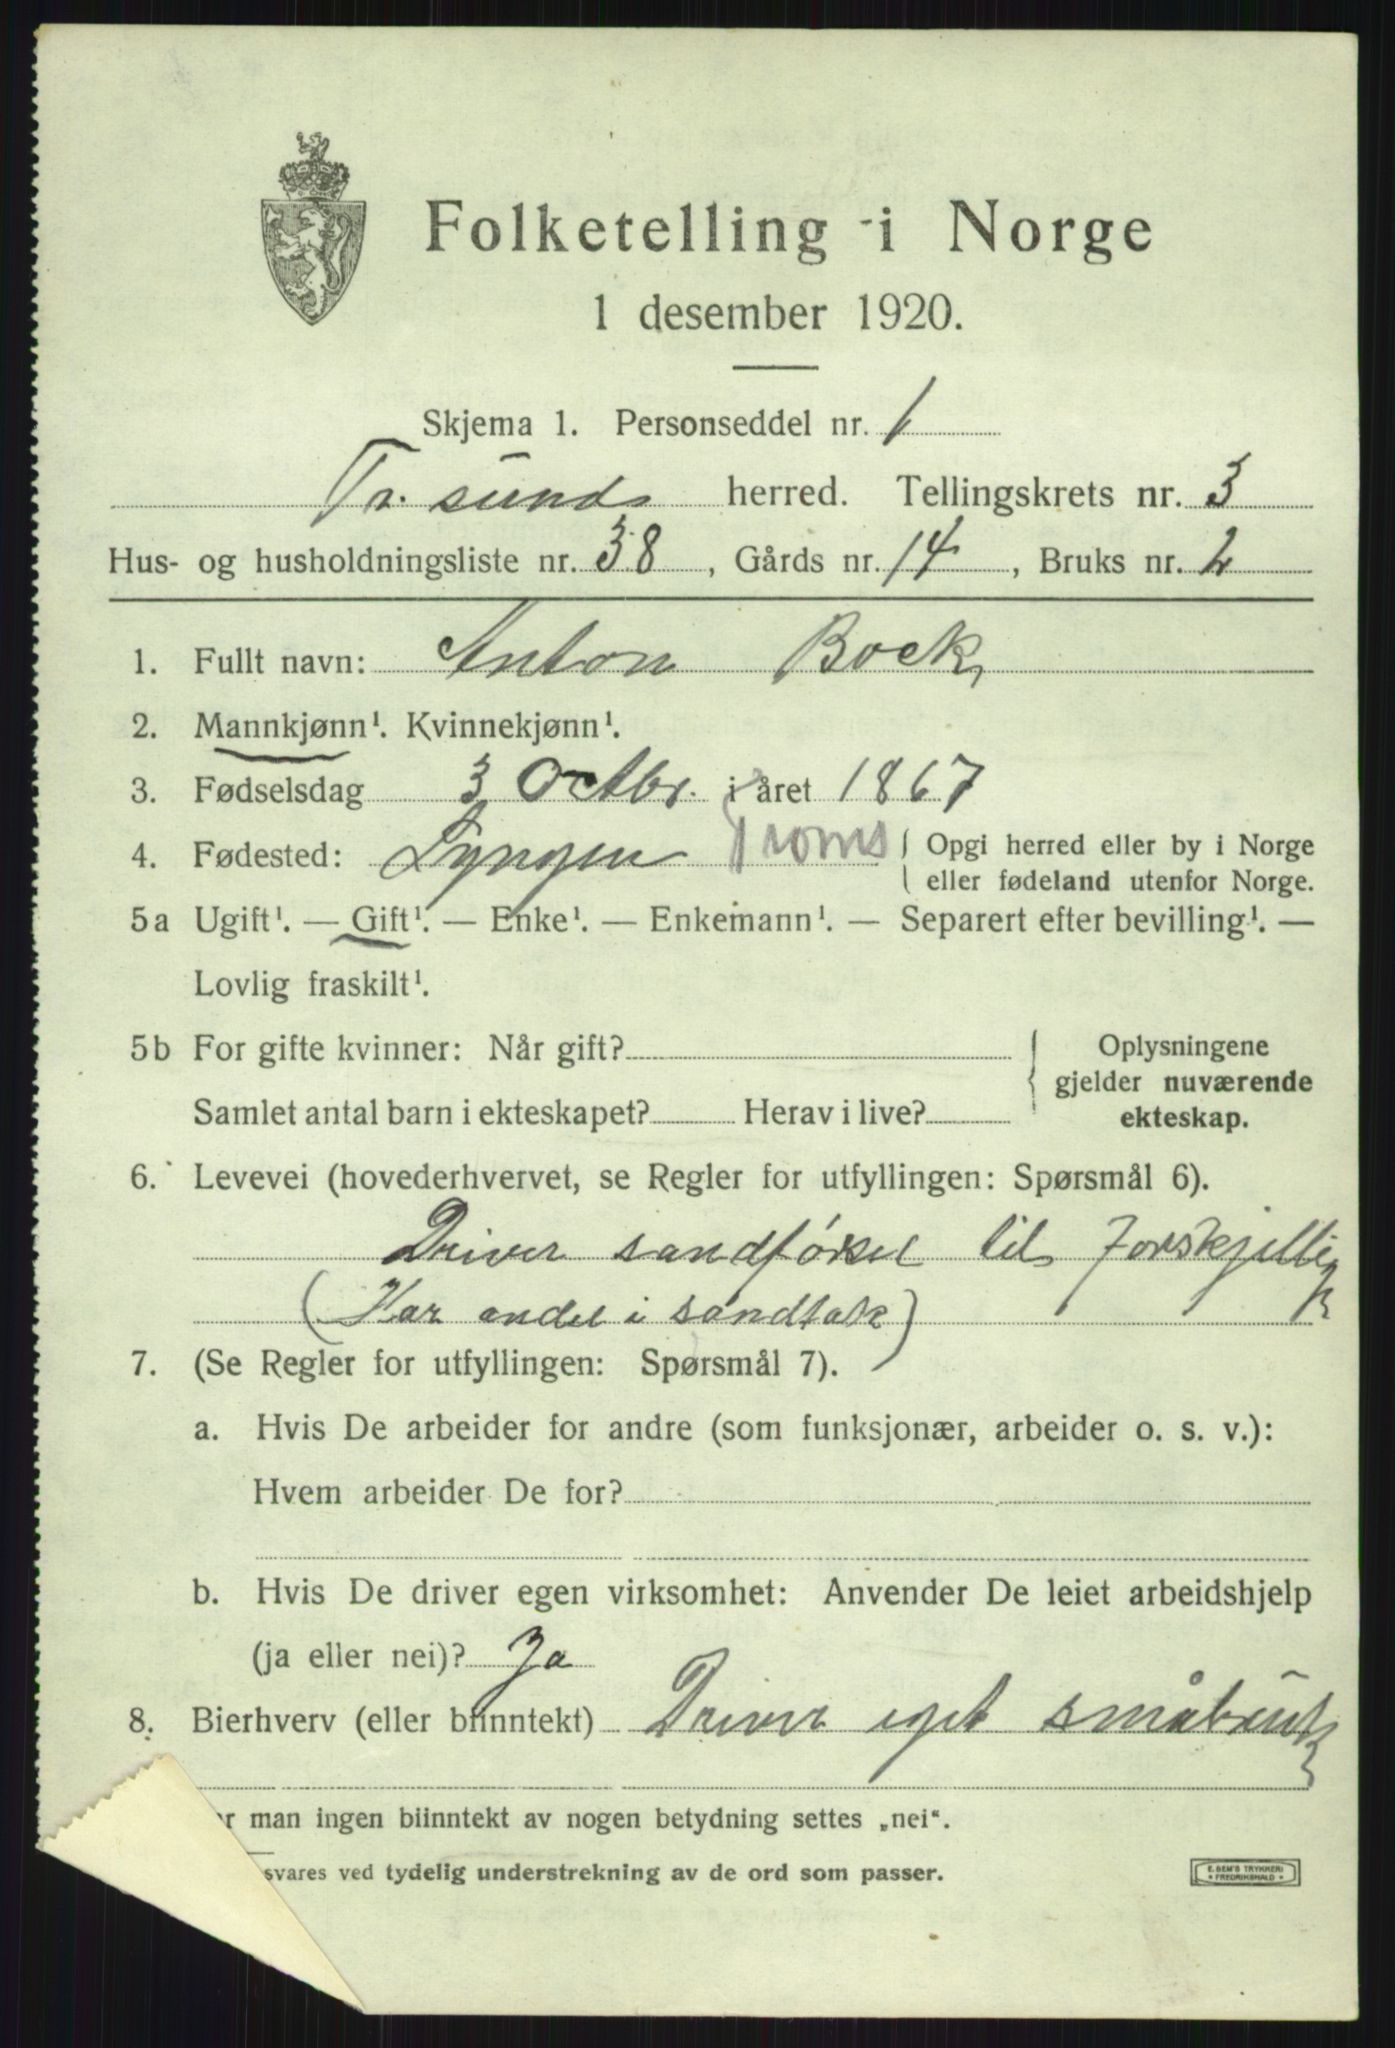 Folketelling i Norge
1 desember 1920.
Skjema 1. Personseddel nr. 1
Tr. sunds herred. Tellingskrets nr. 3
Hus- og husholdningsliste nr. 38, Gårds nr. 14, Bruks nr. 2
1. Fullt navn: Anton Bock
2. Mannkjønn¹. Kvinnekjønn¹.
3. Fødselsdag 3 Octbr. i året 1867
4. Fødested: Lyngen Troms { Opgi herred eller by i Norge
eller fødeland utenfor Norge.
5a Ugift¹. — Gift¹. — Enke¹. — Enkemann¹. — Separert efter bevilling¹. —
Lovlig fraskilt¹.
5b For gifte kvinner: Når gift? { Oplysningene
gjelder nuværende
Samlet antal barn i ekteskapet? Herav i live? ekteskap.
6. Levevei (hovederhvervet, se Regler for utfyllingen: Spørsmål 6).
Driver sandførsel til Forskjellig
(Har andel i sandtak)
7. (Se Regler for utfyllingen: Spørsmål 7).
a. Hvis De arbeider for andre (som funksjonær, arbeider o. s. v.):
Hvem arbeider De for?
b. Hvis De driver egen virksomhet: Anvender De leiet arbeidshjelp
(ja eller nei)? Ja
8. Bierhverv (eller biinntekt) Driver eget småbruk
man ingen biinntekt av nogen betydning settes „nei“.
svares ved tydelig understrekning av de ord som passer.
E. SEM'S TRYKKERI
FREDRIKSHALD